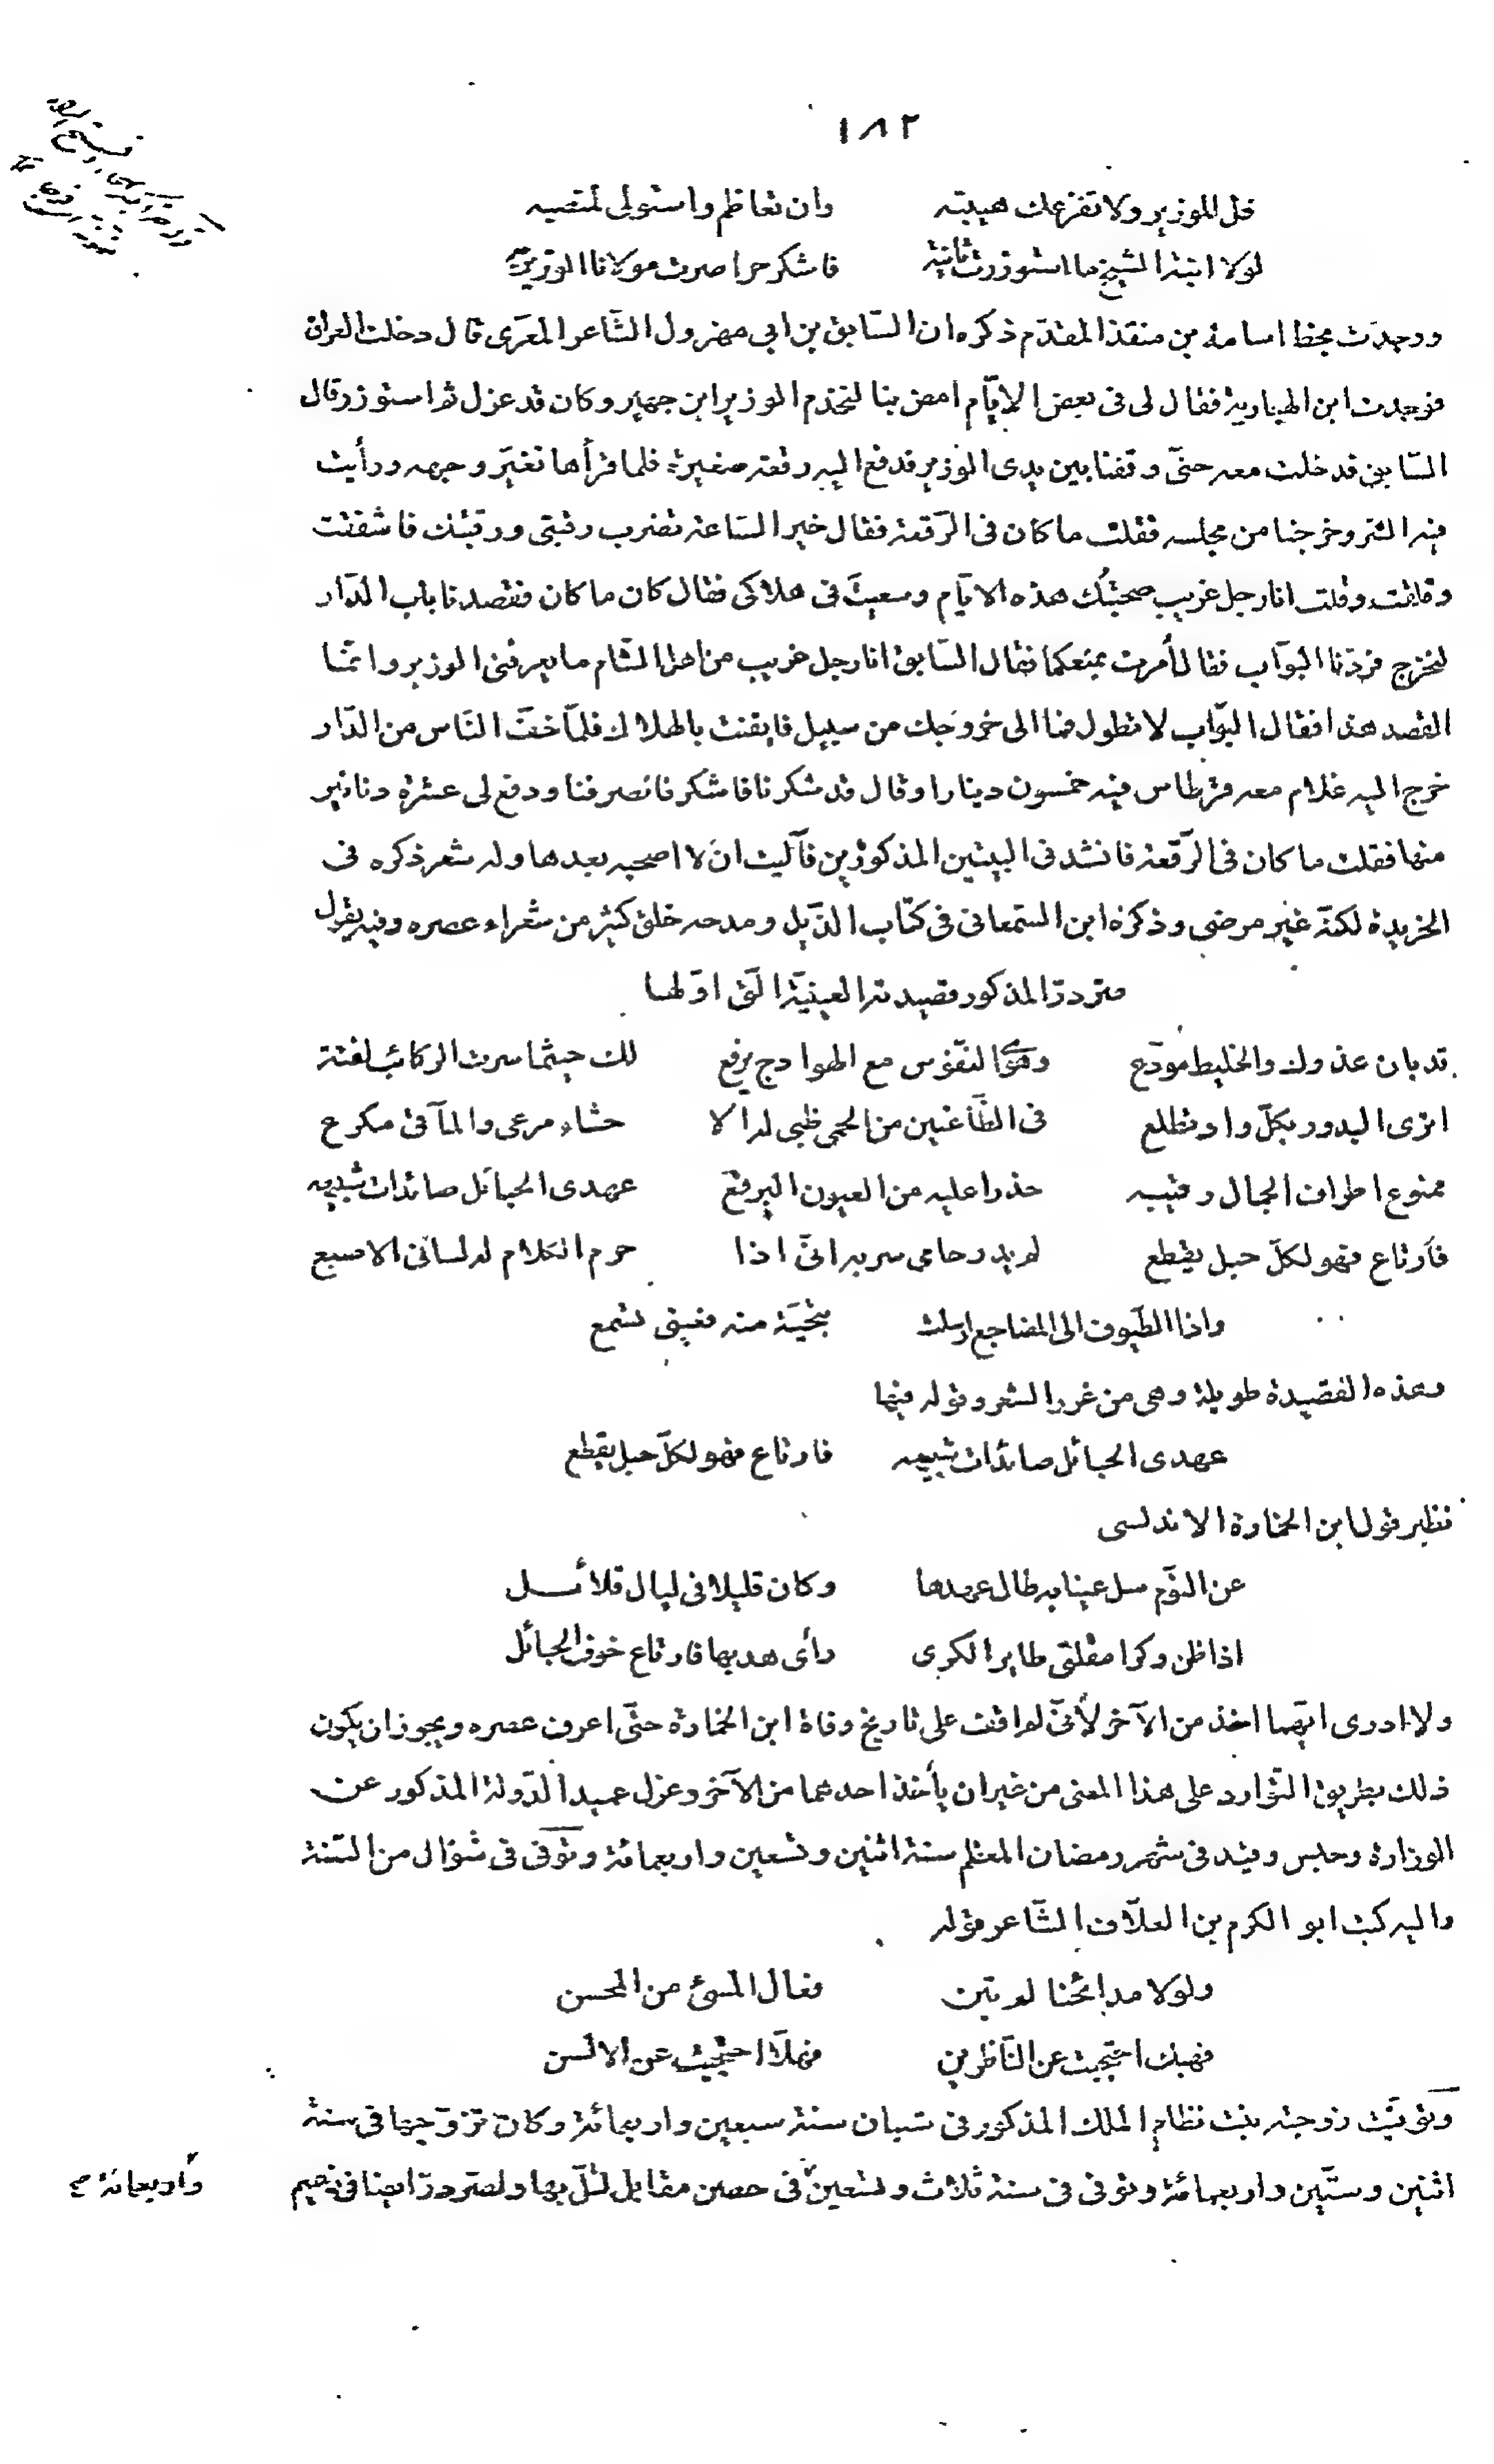 ١٨٢
قل للوزير ولا تفزعك هيبته وان تعاظم واستولى لمنصبه
لولا ابنة الشيخ ما استوزرت ثانية فاشكر حرا صرت مولانا الوزير به
ووجدت بخط اسامة بن منقذ المقدّم ذكره ان السّابق بن ابي مهزول الشّاعر المعرّى قال دخلت العراق
فوجدت ابن الهبارية فقال لى فى بعض الايّام امض بنا لنخدم الوزير ابن جهير وكان قد عزل ثم استوزر قال
السّابق فدخلت معه حتّى وقفنا بين يدى الوزير فدفع اليه رقعة صغيرة فلما قرأها تغيّر وجهه ورأيت
فيه الشّر وخرجنا من مجلسه فقلت ما كان فى الرّقعة فقال خير السّاعة تضرب رقبتى ورقبتك فاشفقت
وقلقت وقلت انا رجل غريب صحبتُك هذه الايّام وسعيتَ فى هلاكى فقال كان ما كان فقصدنا باب الدّار
لنخرج فردّنا البوّاب فقال أمرت بمنعكما فقال السّابق انا رجل غريب من اهل الشّام ما يعرفنى الوزير وانّما
القصد هذا فقال البوّاب لا تطول فما الى خروجك من سبيل فايقنت بالهلاك فلمّا خفّ النّاس من الدّار
خرج اليه غلام معه قرطاس فيه خمسون دينارا وقال قد شكرنا فاشكر فانصرفنا ودفع لى عشرة دنانير
منها فقلت ما كان فى الرّقعة فانشدنى البيتين المذكورين فآليت ان لا اصحبه بعدها وله شعر ذكره فى
الخريدة لكنّه غير مرضى وذكره ابن السّمعانى فى كتاب الذّيل ومدحه خلق كثير من شعراء عصره وفيه يقول
صرّدرّ المذكور قصيدته العينيّة الّتى اوّلها
قد بان عذرك والخليط مودّع وهوى النفوس مع الهوادج يرفع لك حيثما سرت الركائب لفتة
اترى البدور بكلّ واد تطلع فى الظّاعنين من الحمى ظبى له الا حشاء مرعى والمآقى مكرع
ممنوع اطراف الجمال رقيبه حذرا عليه من العيون البرقع عهدى الحبائل صائدات شبيهه
فأرتاع فهو لكلّ حبل يقطع لم يدر حامى سربه انّى اذا حرم الكلام له لسانى الاصبع
واذا الطّيوف الى المضاجع ارسلت بتحيّة منه فعينى تسمع
وهذه القصيدة طويلة وهى من غرر الشعر وقوله فيها
عهدى الحبائل صائدات شبيهه فارتاع فهو لكلّ حبل يقطع
نظير قول ابن الخمارة الاندلسى
عن النوّم سل عينا به طال عهدها وكان قليلا فى ليال قلائل
اذا ظن وكرا مقلتى طاير الكرى رأى هدبها فارتاع خوف الحبائل
ولا ادرى ايّهما اخذ من الآخر لأنّى لم اقف على تاريخ وفاة ابن الخمارة حتّى اعرف عصره ويجوز ان يكون
ذلك بطريق التّوارد على هذا المعنى من غير ان يأخذ احدهما من الآخر وعزل عميد الدّولة المذكور عن
الوزارة وحبس وقيد فى شهر رمضان المعظم سنة اثنين وتسعين واربعمائة وتوفّى فى شوّال من السّنة
واليه كتب ابو الكرم بن العلاّف الشّاعر قوله
ولولا مدائحنا لم تبن فعال المسئ من المحسن
فهبك احتجبت عن النّاظرين فهلاّ احتجبت عن الالسن
وتوفّيت زوجته بنت نظام الملك المذكور فى شعبان سنة سبعين واربعمائة وكان تزوّجها فى سنة
اثنين وستّين واربعمائة وتوفى فى سنة ثلاث وتسعين فى حصن مقابل لتلّ بها ولصرّدرّ ايضا فى زعيم
وأربعمائة صح